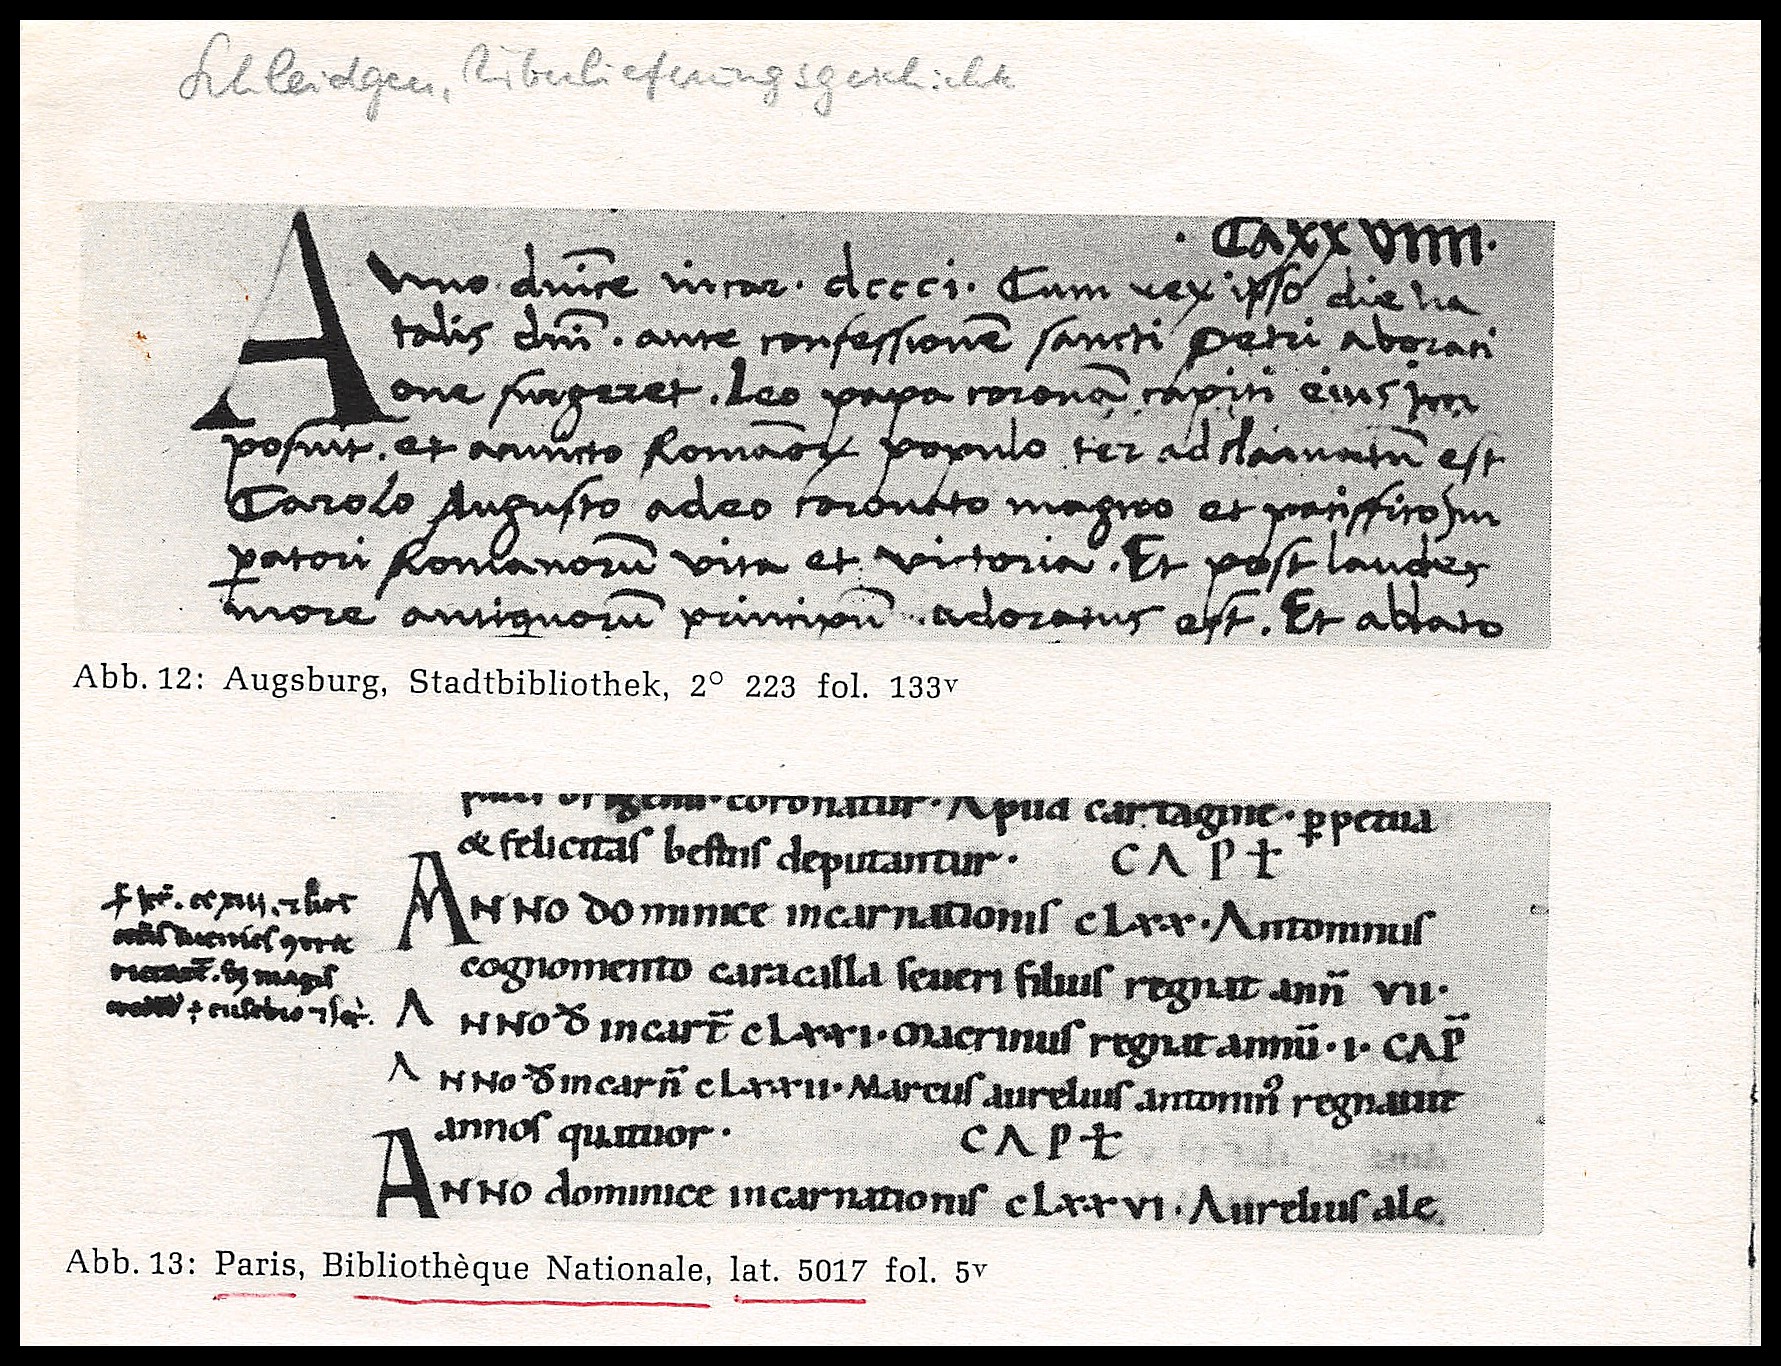 Schleidgen, Überlieferungsgeschichte
· CAXXVIIII·
Anno dnice incar· dccci· Cum rex ipso die na
talis dni · ante confessione sancti Petri ab orati
one surgeret · Leo papa corona capiti eius im
posuit · et a cuncto Romanoꝝ populo ter adclamatu est
Carolo Augusto a deo coronato magno et pacifico Im
ꝑatori Romanoru vita et victoria · Et post laudes
more antiquoru principu · adoratus est · Et ablato
Abb. 12: Augsburg, Stadtbibliothek, 2° 223 fol. 133v
coronatur · Apud cartagine · ꝑpetua
& felicitas bestiis deputantur · CAPt
ANNO dominice incarnationis cLxx · Antoninus
cognomento caracalla seueri filius regnat ann vii·
ANNO d incart cLxxi· Macrinus regnat annu · i · CAP
ANNO d incarn cLxxii· Marcus aurelius antonin regnauit
annos quatuor · CAPt
ANNO dominice incarnationis cLxxvi · Aurelius ale
Abb. 13: Paris, Bibliothèque Nationale, lat. 5017 fol. 5v